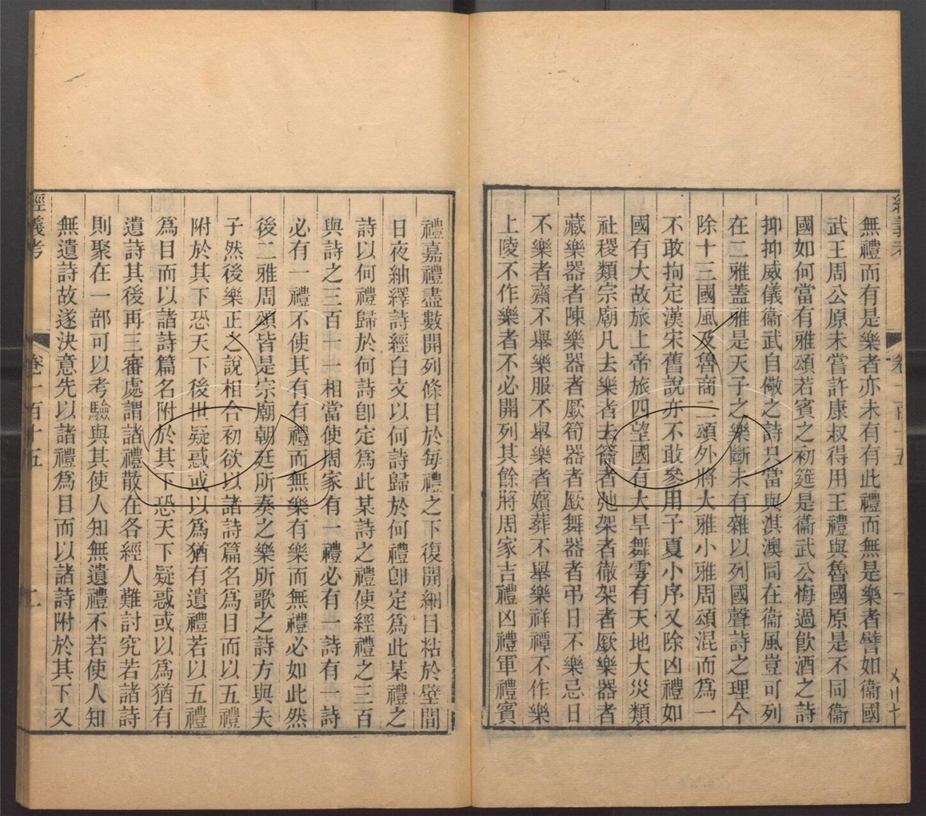 經義考
卷一百十五
無禮而有是樂者亦未有有此禮而無是樂者譬如衞國
武王周公原未嘗許康叔得用王禮與魯國原是不同衞
國如何當有雅頌若賓之初筵是衞武公悔過飮酒之詩
抑抑威儀衞武自儆之詩只當與淇澳同在衞風豈可列
在二雅蓋雅是天子之樂斷未有雜以列國聲詩之理今
除十三國風及魯商二頌外將大雅小雅周頌混而為一
不敢拘定漢宋舊說亦不敢參用子夏小序又除凶禮如
國有大故旅上帝旅四望國有大旱舞雩有天地大災類
社稷類宗廟凡去樂者去籥者弛架者徹架者廞樂器者
藏樂器者陳樂器者廞筍器者廞舞器者弔日不樂忌日
不樂者齋不舉樂服不舉樂者嬪葬不舉樂祥禫不作樂
上陵不作樂者不必開列其餘將周家吉禮凶禮軍禮賓
禮嘉禮盡數開列條目於每禮之下復開細目粘於壁間
日夜紬繹詩經白文以何詩歸於何禮卽定為此某禮之
詩以何禮歸於何詩卽定爲此某詩之禮使經禮之三百
與詩之三百一一相當使周家有一禮必有一詩有一詩
必有一禮不使其有有禮而無樂有樂而無禮必如此然
後二雅周頌皆是宗廟朝廷所奏之樂所歌之詩方與夫
子然後樂正之說相合初欲以諸詩篇名爲目而以五禮
附於其下恐天下後世疑惑或以爲猶有遺禮若以五禮
爲目而以諸詩篇名附於其下恐天下疑惑或以爲猶有
遺詩其後再三審處謂諸禮散在各經人難討究若諸詩
則聚在一部可以考驗與其使人知無遺禮不若使人知
無遺詩故遂決意先以諸禮爲目而以諸詩附於其下又
經義考
卷一百十五
二